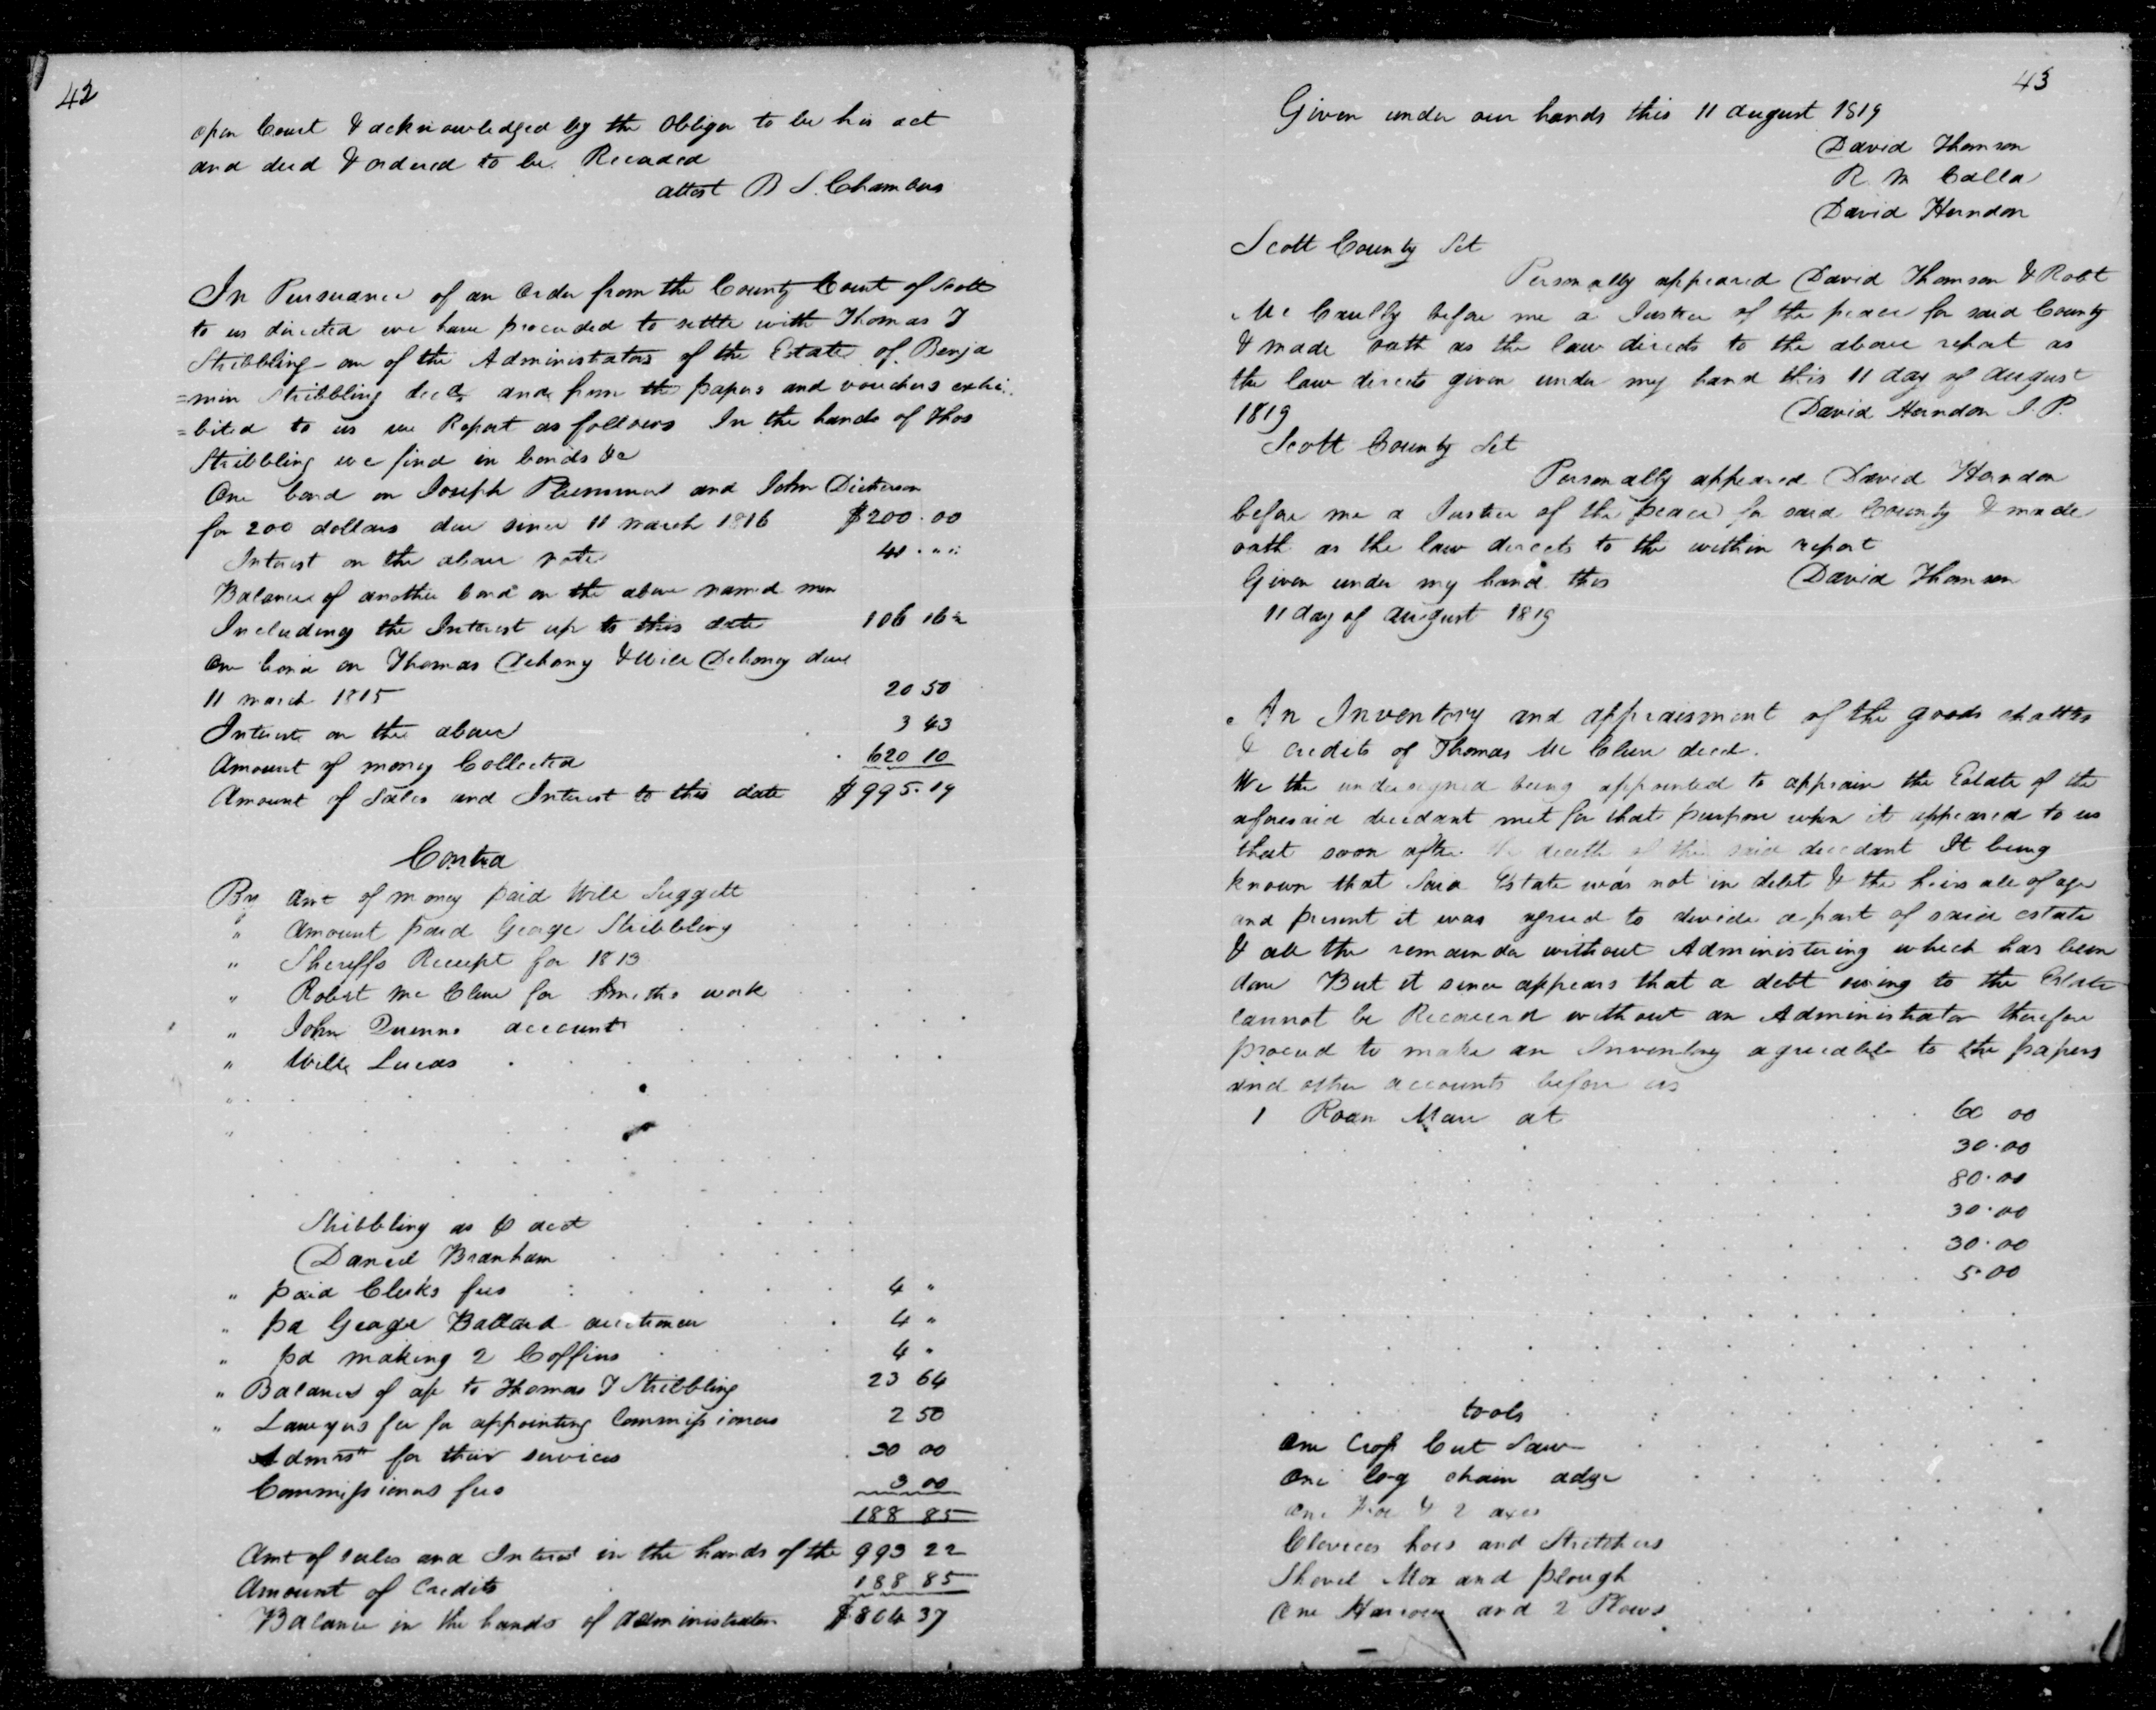 42
open Court & acknowledged by the Obligor to be his act
and deed & ordered to be Recorded
attest B S. Chambers
In Pursuance of an Order from the County Court of Scott
to us directed we have proceeded to settle with Thomas T
Stribbling one of the Administrators of the Estate of Benja
=min Stribbling decd and from the papers and vouchers exhi
=bited to us we Report as follows In the hands of Thos
Stribbling we find in bonds &c
One bond on Joseph and John Dickerson
for 200 dollars due since 11 march 1816 $200.00
Interest on the above note 41 . " "
Balance of another bond on the above named men
Including the Interest up to this date 106 16
one bond on Thomas Dehony & Will Dehony due
11 march 1815 20 50
Interest on the above 3 43
Amount of money Collected 620 10
Amount of Sales and Interest to this date $995.19
Contra
By Amt of money paid Will Suggett
" Amount paid George Stribbling
" Sheriffs Receipt for 1813
" Robert Mc Clure for Smiths work
" John Quinns account
" Will Lucas
"
"
Stribbling as P acct
Daniel Branham
" paid Clerks fees 4 "
" pd George Ballard auctioneer 4 "
" pd making 2 Coffins 4 "
" Balance of ap to Thomas T Stribbling 23 64
" Lawyers fee for appointing Commissioners 2 50
Admrs for their services 30 00
Commissioners fees 3 00
188 85
Amt of sales and Interest in the hands of the 993 22
Amount of Credits 188 85
Balance in the hands of administrator $804 37
43
Given under our hands this 11 august 1819
David Thomson
R. M Calla
David Herndon
Scott County Sct
Personally appeared David Thomson & Robt
Mc Caully before me a Justice of the peace for said County
& made oath as the law directs to the above report as
the law directs given under my hand this 11 day of August
1819 David Herndon J. P.
Scott County Sct
Personally appeared David Herndon
before me a Justice of the peace for said County & made
oath as the law directs to the within report
Given under my hand this David Thomson
11 day of august 1819
An Inventory and appraisment of the goods chattles
& credits of Thomas Mc Clure decd.
We the undersigned being appointed to appraise the Estate of the
aforesaid decedant met for that purpose when it appeared to us
that soon after the death of the said decedant It being
known that Said Estate was not in debt & the heirs all of age
and present it was agreed to devide a part of said estate
& all the remainder without Administering which has been
done But it since appears that a debt owing to the Estate
cannot be Recovered without an Administrator therefore
proceed to make an Inventory agreeable to the papers
and other accounts before us
1 Roan Mare at 60 00
30.00
80.00
30.00
30.00
5.00
tools
One Crop Cut Saw
One log chain adze
One & 2 axes
Clevices hoes and Stretchers
Shovel Mox and plough
One Harrow and 2 Plows